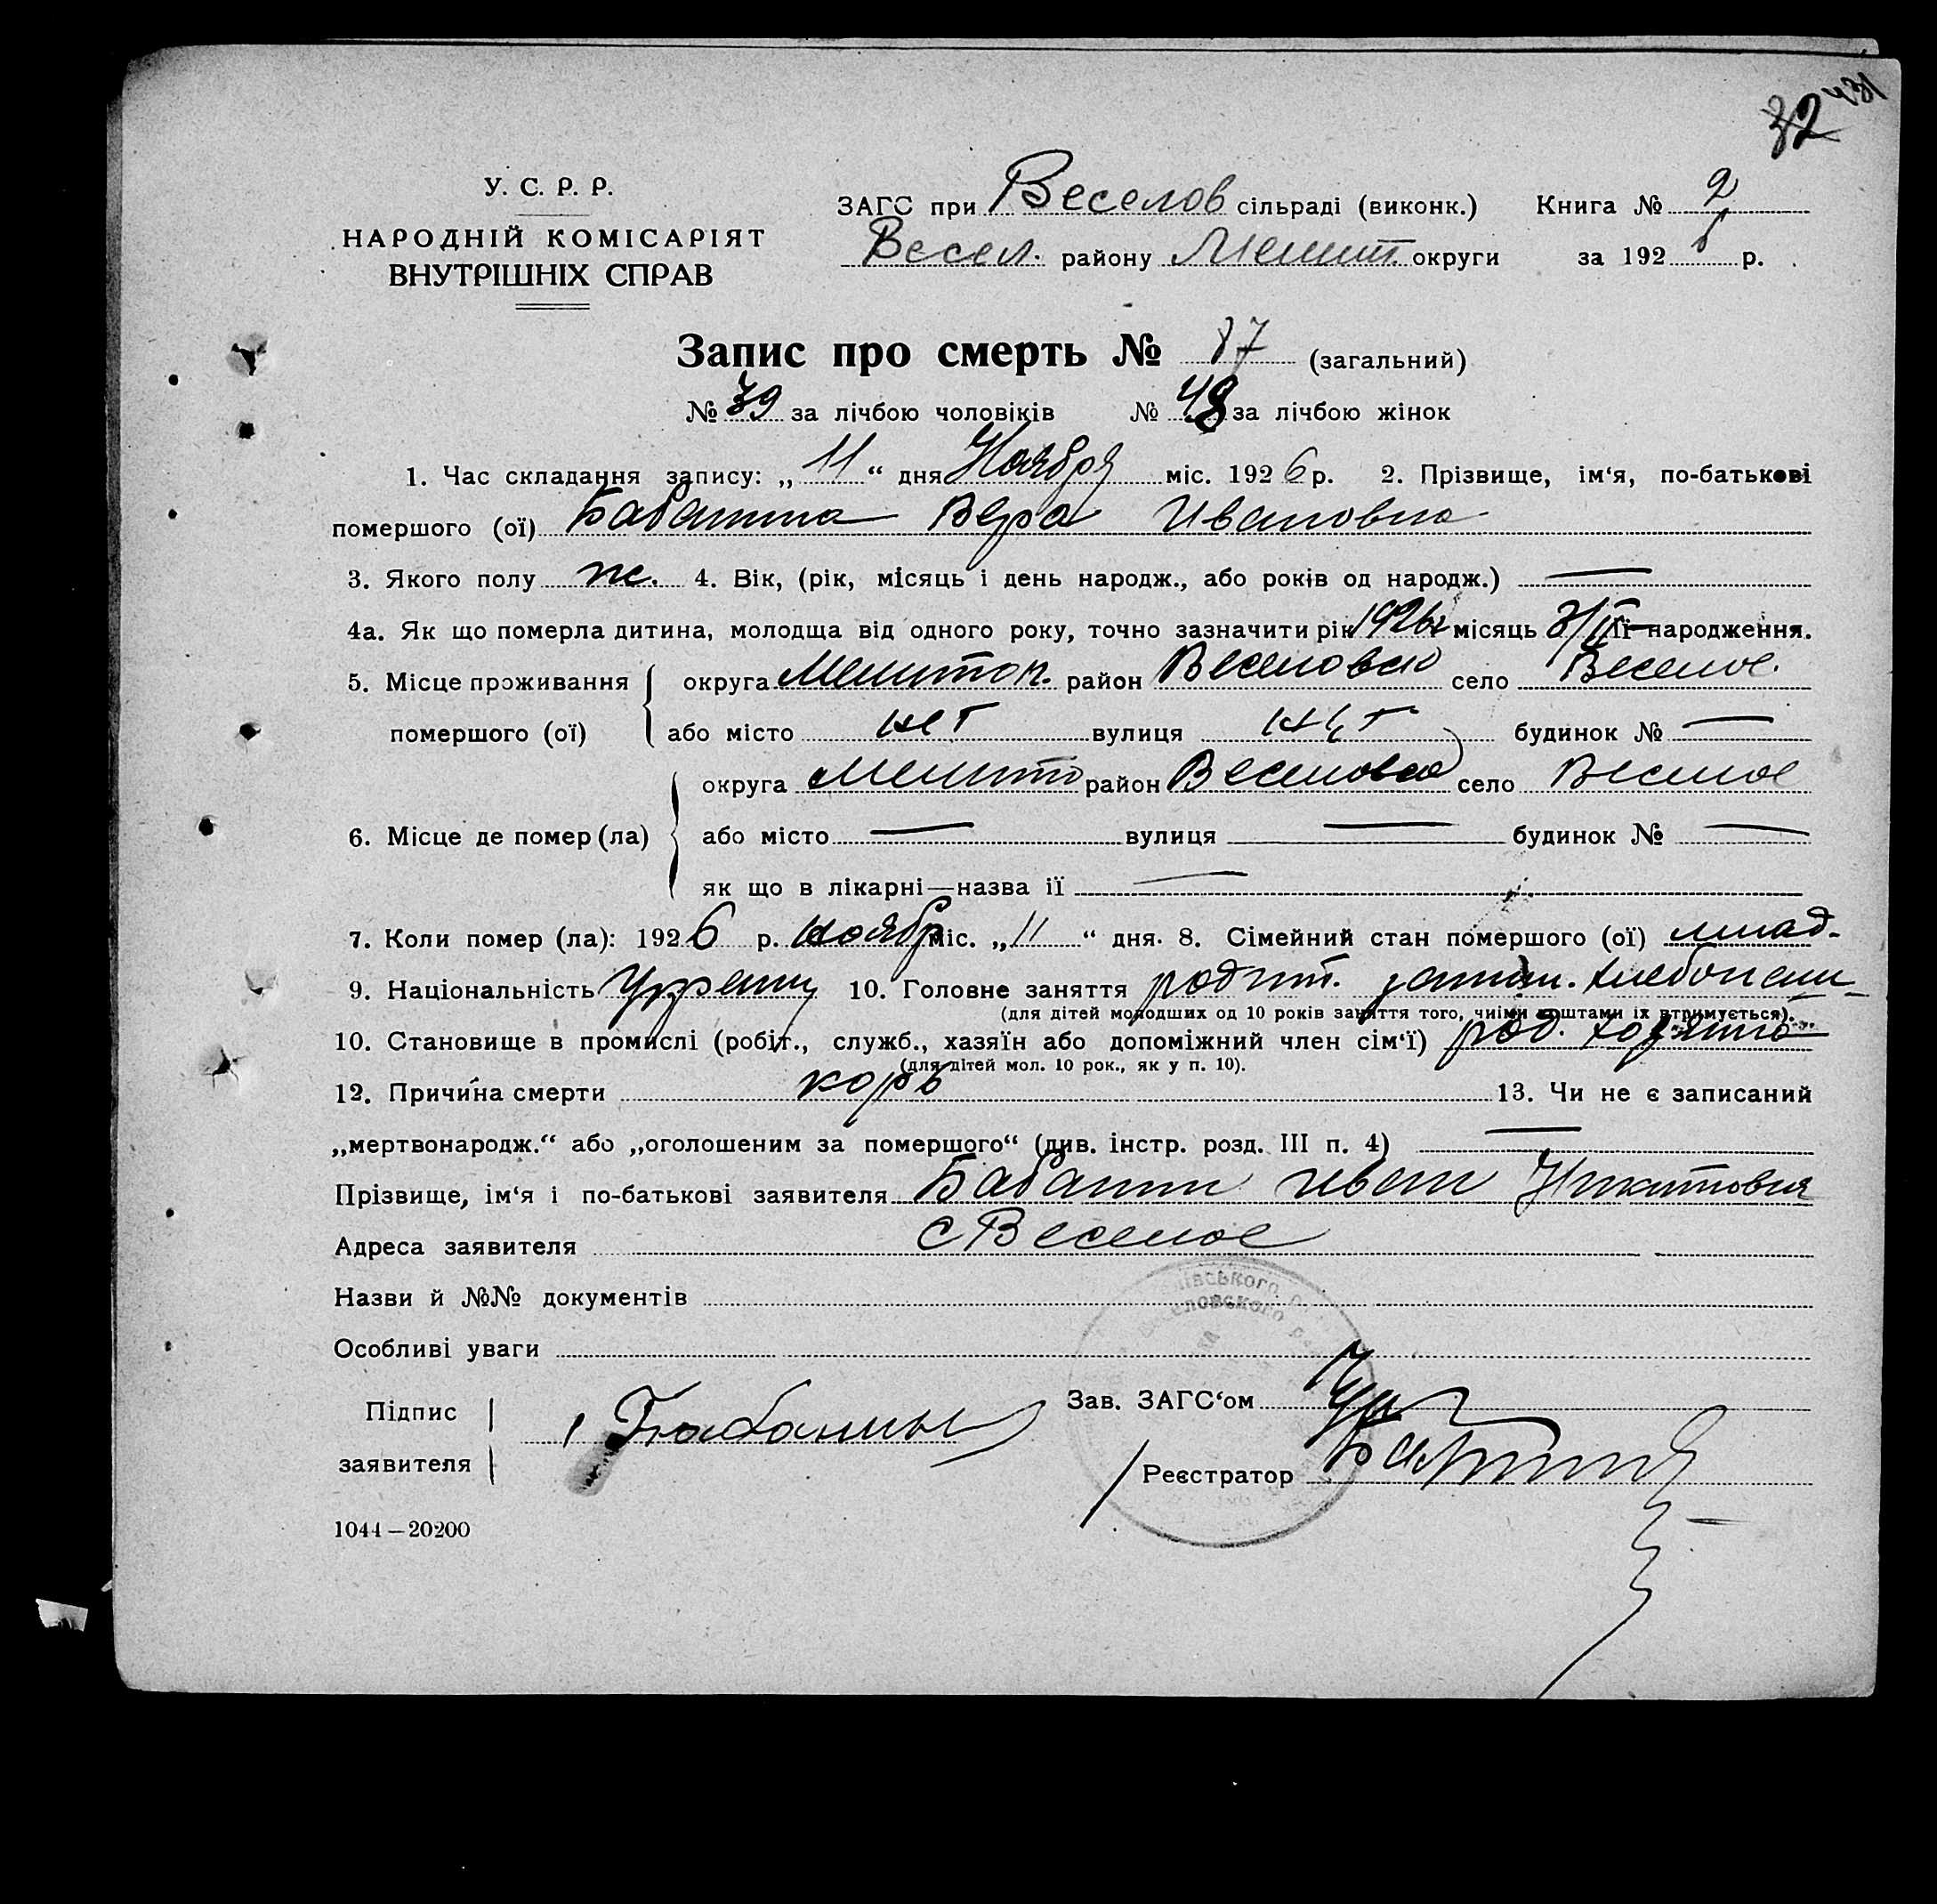 32
У. С. Р. Р.
НАРОДНІЙ КОМІСАРІЯТ
ВНУТРІШНІХ СПРАВ
ЗАГС при Веселов сільраді (виконк.) Книга № 2
Весел. району Мелит. округи за 1926 р.
Запис про смерть № 87 (загальний)
№ 39 за лічбою чоловіків № 48 за лічбою жінок
1. Час складання запису: „11“ дня Ноября міс. 1926 р. 2. Прізвище, ім‘я, по-батькові
помершого (ої) Вера Ивановна
3. Якого полу ж. 4. Вік, (рік, місяць і день народж., або років од народж.) —
4а. Як що померла дитина, молодща від одного року, точно зазначити рік 1926 місяць її народження.
5. Місце проживання помершого (ої) округа Мелитоп. район Веселовск село Веселое.
або місто нет вулиця нет будинок № —
6. Місце де помер (ла) округа Мелито район Веселовск село Веселое
або місто — вулиця — будинок № —
як що в лікарні—назва її —
7. Коли помер (ла): 1926 р. ноябр міс. „11“ дня. 8. Сімейний стан помершого (ої) млад.
9. Національність Украин 10. Головне заняття родит. хлебопаш
(для дітей молодших од 10 років заняття того, чиїми коштами їх втримується).
10. Становище в промислі (робіт., служб., хазяїн або допоміжний член сім‘ї) род. хозяин
(для дітей мол. 10 рок., як у п. 10).
12. Причина смерти корь 13. Чи не є записаний
„мертвонародж.“ або „оголошеним за помершого“ (див. інстр. розд. III п. 4) —
Прізвище, ім‘я і по-батькові заявителя Иван Никитович
Адреса заявителя с Веселое
Назви й №№ документів
Особливі уваги
Підпис заявителя
Зав. ЗАГС‘ом
Реєстратор
1044—20200